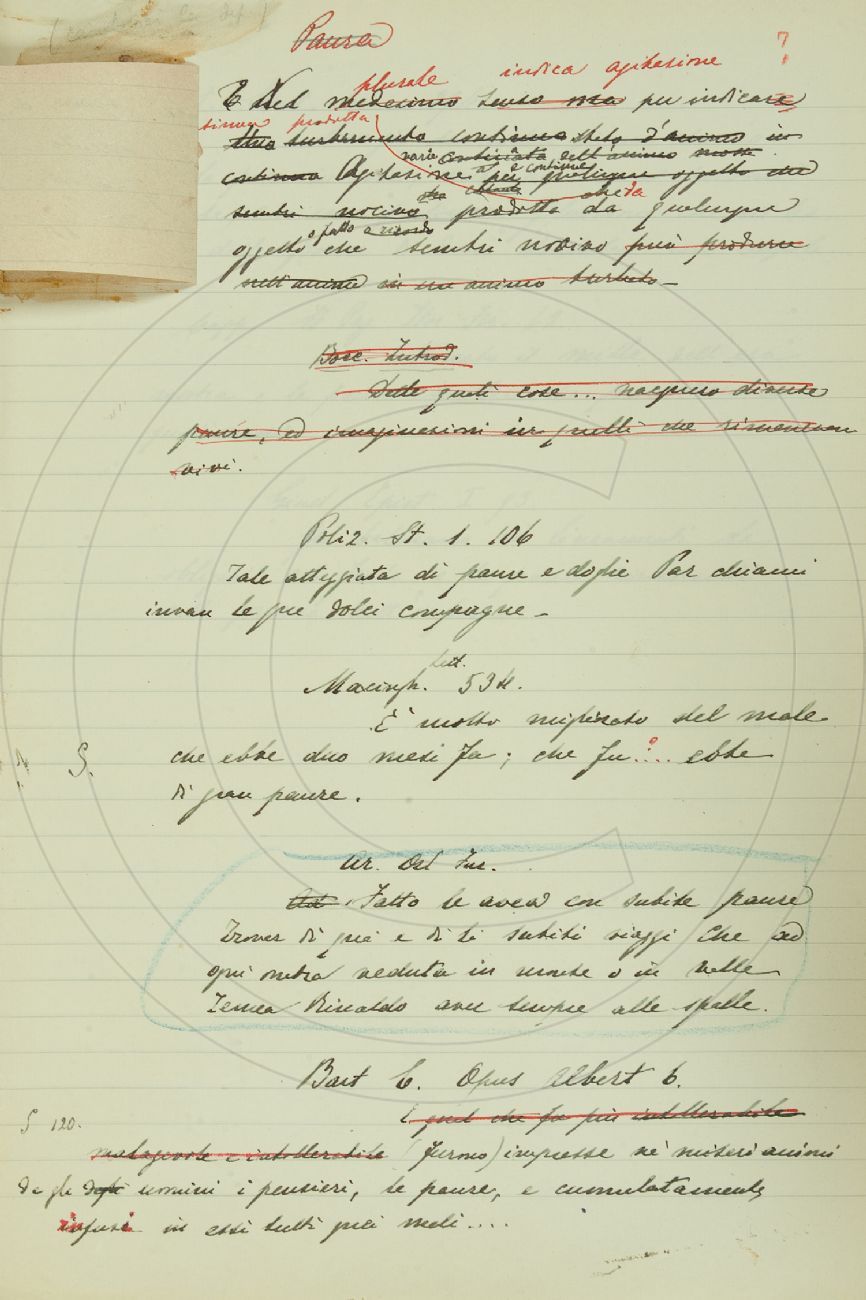 Paura ?
E Nel plurale indica agitazione
medesimo senso ma per indicare
prodotta
Uno turbamento continuo stato d'animo in
continua Agitazione per qualunque oggetto che
sembri nocivo prodotta da qualunque
o fatto o ricordo
oggetto che sembri nocivo può produrre
nell'animo in un animo turbato —
Bocc. Introd.
Dalle quali cose... nacquero diverse
paure, ed imaginazioni in quelli che rimanevano
vivi.
Poliz. St. 1. 106
Tale atteggiata di paure e doglie Par chiami
invan le sue dolci compagne —
Macingh. Lett. 534.
È molto migliorato del male
che ebbe duo mesi fa; che fu .... ebbe
di gran paure.
§.
Ar. Orl. Fur.
Fatto le avea con subite paure
Trovar di quà e di là subiti viaggi Che ad
ogni ombra veduta in monte o in valle
Temea Rinaldo aver sempre alle spalle.
Bart. C. Opus Albert 6.
E quel che fu più intollerabile
§ 120.
malagevole e intollerabile (furono) impresse ne' miseri animi
degli uomini i pensieri, le paure, e cumulatamente
infusi in essi tutti quei mali....